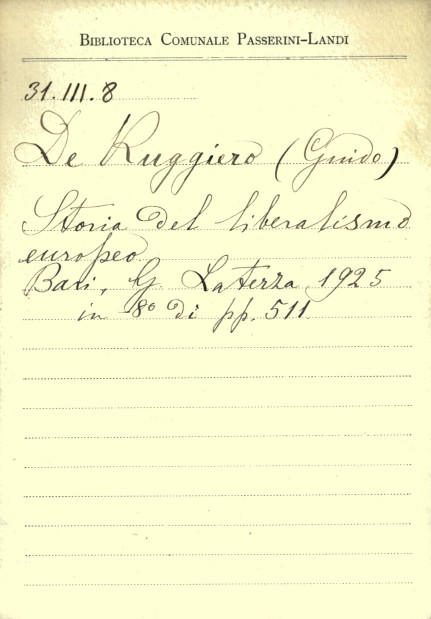 BIBLIOTECA COMUNALE PASSERINI-LANDI
31.III.8
De Ruggiero (Guido)
Storia del liberalismo
europeo.
Bari, G. Laterza, 1925
in 8º di pp. 511.